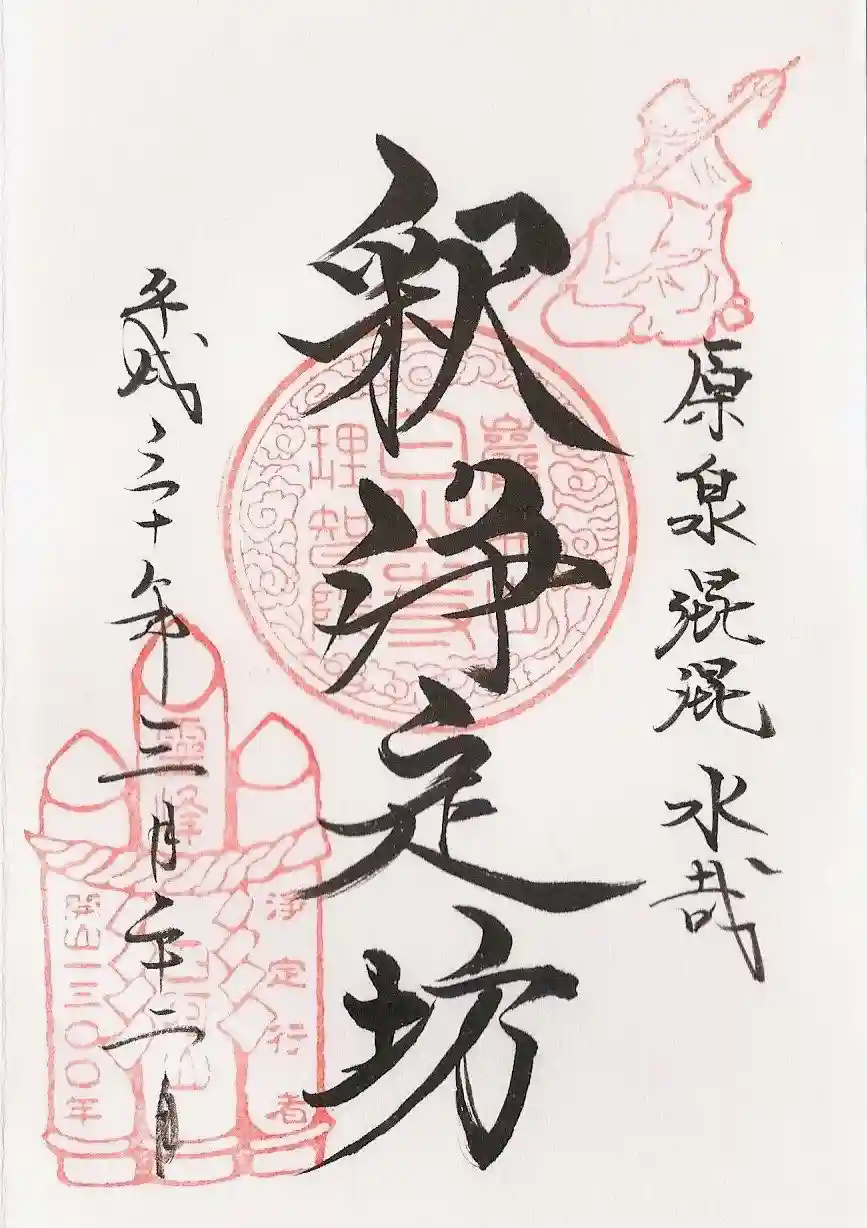 原泉混混水哉
釈浄定坊
平成三十年三月二十二日
理智院
霊峰
浄定行者
開山一三〇〇年